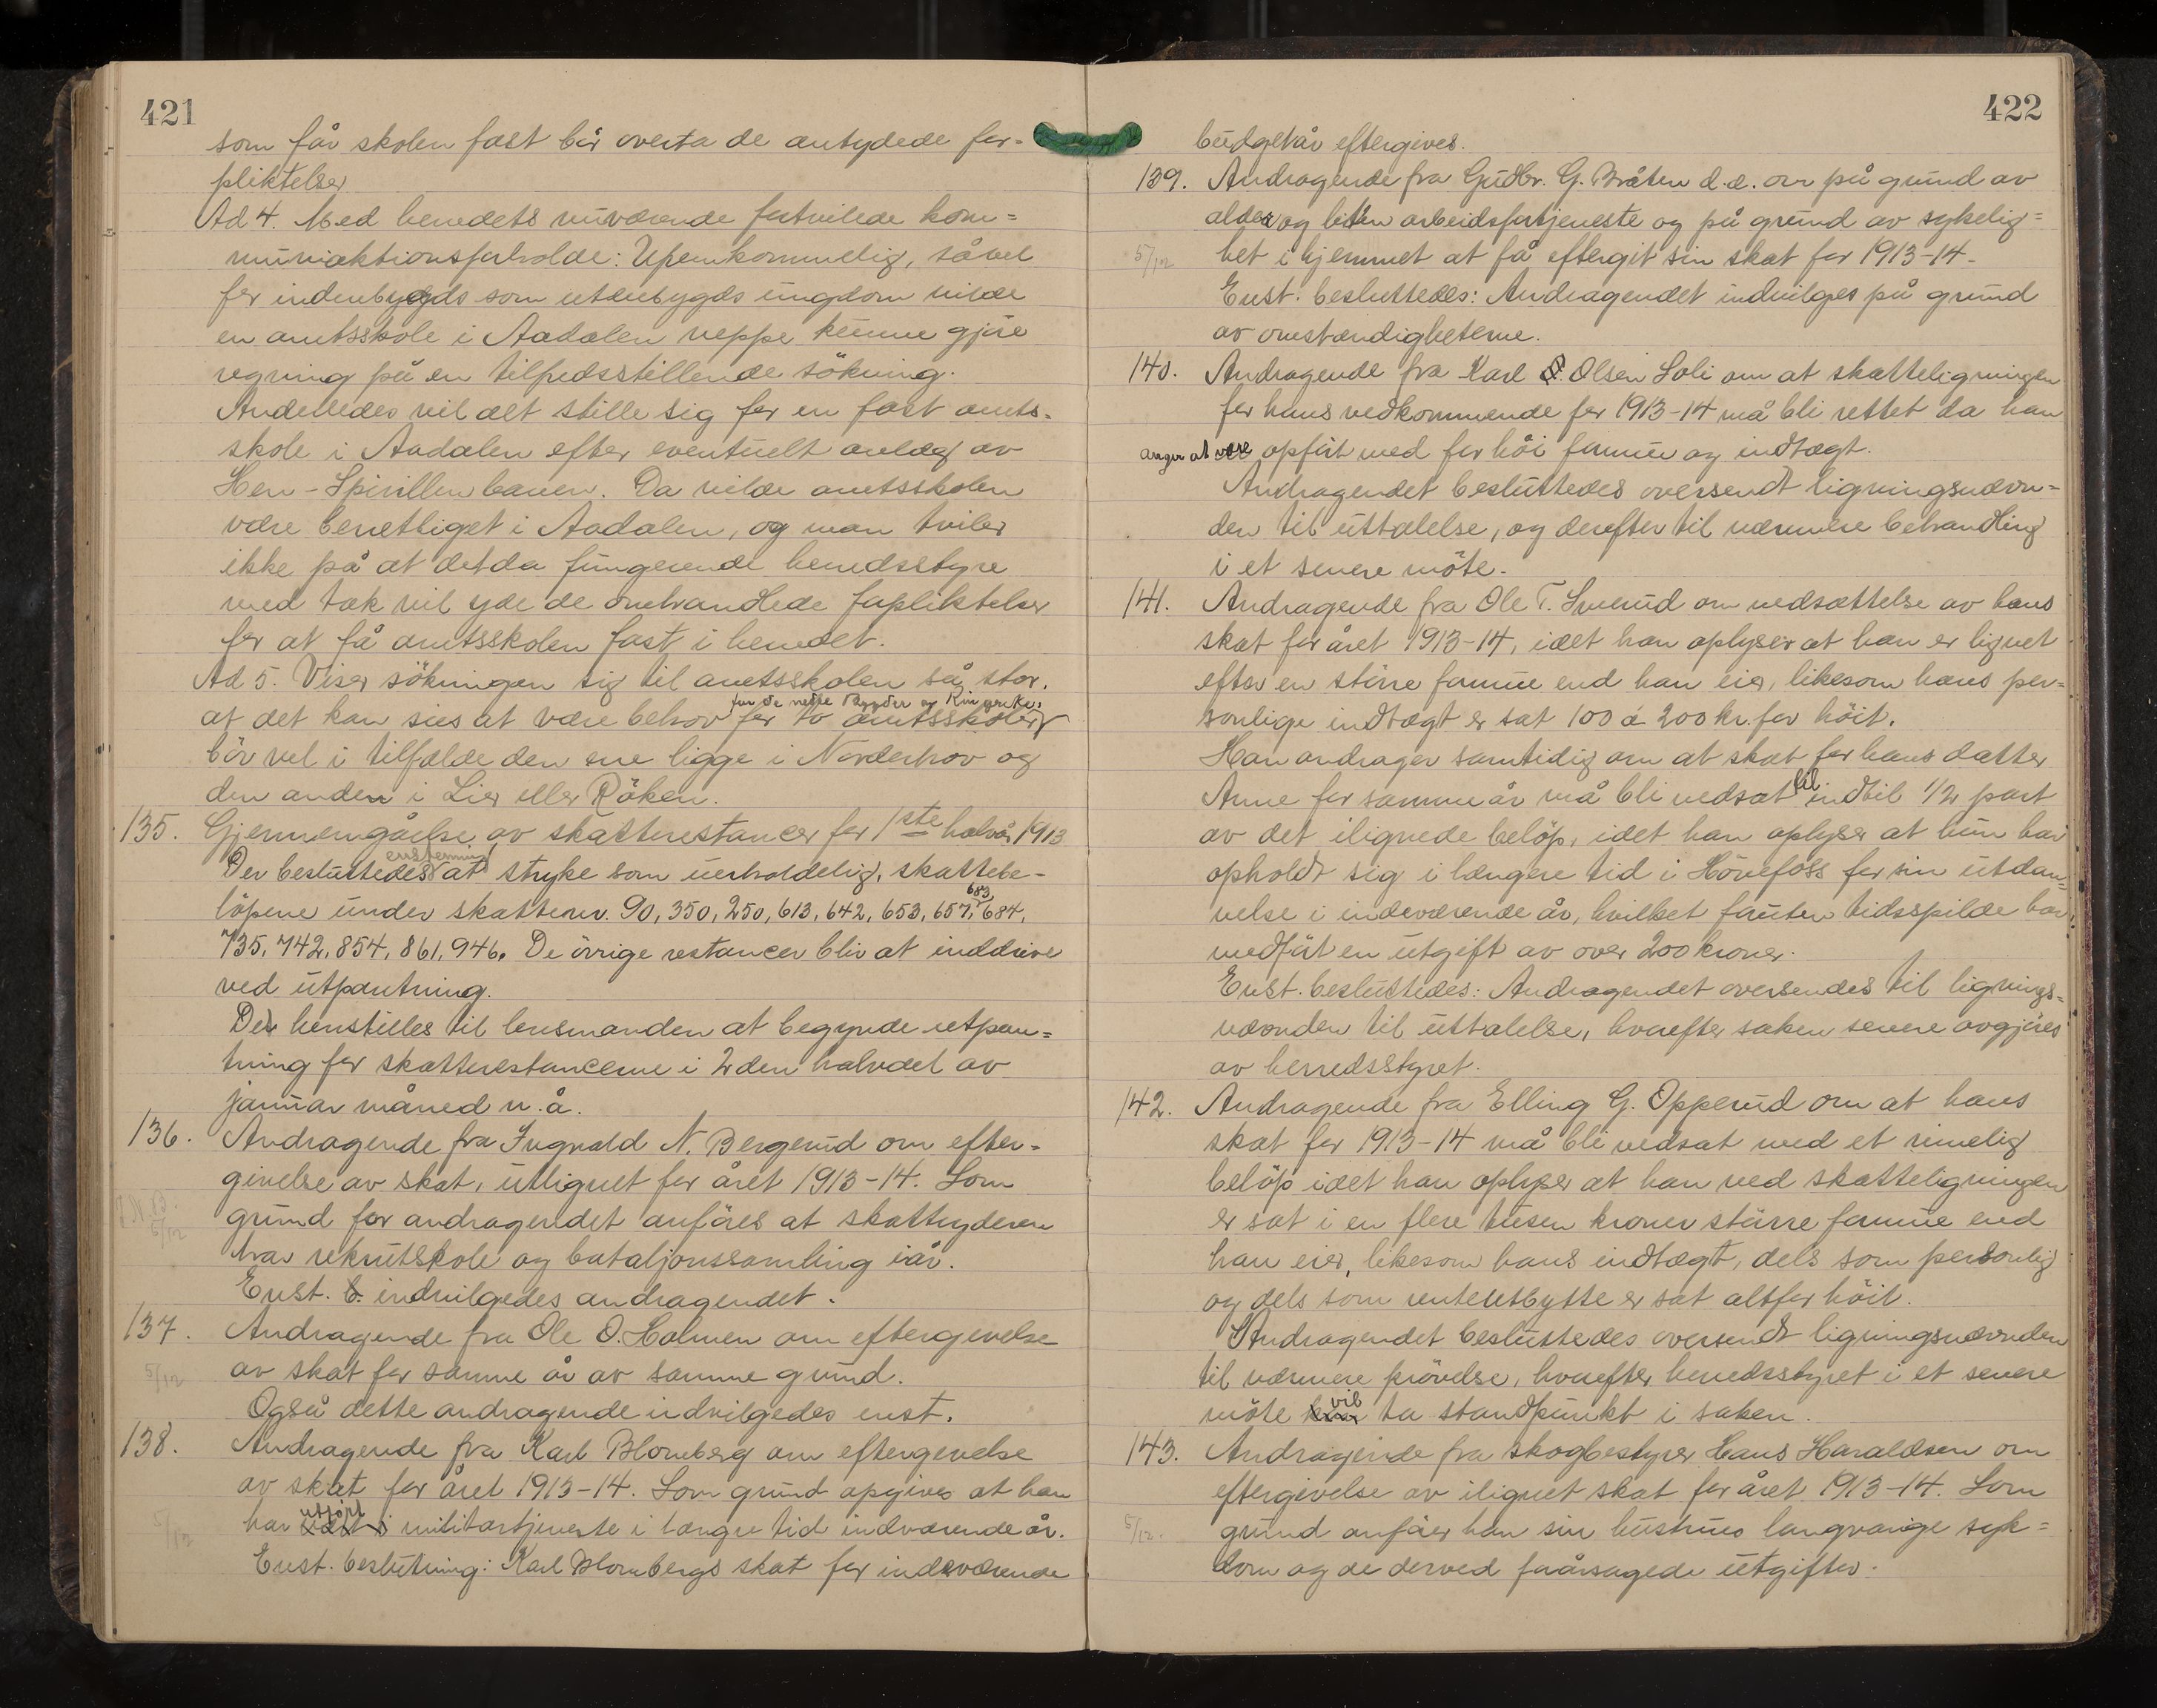 421
som får skolen fast bör overta de antydede for-
pliktelser
Ad 4. Med herredets nuværende fortvilede kom=
muniaktionsforholde: Upenkommelig, såvel
for indenbygds som utenbygds ungdom vilde
en amtsskole i Aadalen neppe kunne gjöre
regning på en tilfredsstillende sökning.
Anderledes vil det stille sig for en fast amts-
skole i Aadalen efter eventuelt anlæg av
Hen-Spirillenbanen. Da vilde amtsskolen
være berettiget i Aadalen, og man tviler
ikke på at det da fungerende herredsstyre
med tak vil yde de omhandlede forpliktelser
for at få amtsskolen fast i herredet.
Ad 5. Viser sökningen sig til amtsskolen så stor,
for de nedre Bygder og Ringerike,
at det kan sies at være behov for to amtsskoler
bör vel i tilfælde den ene ligge i Norderhov og
den anden i Lier eller Röken.
135. Gjennemgåelse av skatterestancer for 1ste halvår 1913
enstemmig
Der besluttedes at stryke som uerholdelig, skattebe-
löpene under skattenr. 90, 350, 250, 613, 642, 653, 657, 683, 684,
735, 742, 854, 861, 946. De övrige restancer blir at inddrive
ved utpantning.
Det henstilles til lensmanden at begynde utpan=
tning for skatterestancerne i 2den halvdel av
januar måned n.å.
136. Andragende fra Ingvald N. Bergerud om efter-
givelse av skat, utlignet for året 1913-14. Som
5/12 grund for andragendet anföres at skatteyderen
har rekrutskole og bataljonssamling iår.
Enst. b. indvilgedes andragendet.
137. Andragende fra Ole O. Holmen om eftergivelse
5/12 av skat for samme år av samme grund.
Også dette andragende indvilgedes enst.
138. Andragende fra Karl Blomberg om eftergivelse
av skat for året 1913-14. Som grund opgives at han
5/12 har utfört militærtjeneste i længre tid indværende år.
Enst. beslutning: Karl Blombergs skat for indeværende
422
budgetår eftergives.
139. Andragende fra Gudbr. G. Bråten d.æ. om på grund av
alder og liten arbeidsfortjeneste og på grund av sykelig=
5/12 het i hjemmet at få eftergit sin skat for 1913-14.
Enst. besluttedes: Andragendet indvilges på grund
av omstændigheterne.
140. Andragende fra Karl O. Olsen Soli om at skatteligningen
for hans vedkommende for 1913-14 må bli rettet da han
angir at være opfört med for höi formue og indtægt.
Andragendet besluttedes oversendt ligningsnævn=
den til uttalelse, og derefter til nærmere behandling
i et senere möte.
141. Andragende fra Ole T. Smerud om nedsættelse av hans
skat for året 1913-14, idet han oplyser at han er lignet
efter en större formue end han eier, likesom hans per=
sonlige indtægt er sat 100 á 200 kr. for höit.
Han andrager samtidig om at skat for hans datter
Anne for samme år må bli nedsat til indtil 1/2 part
av det ilignede belöp, idet han oplyser at hun har
opholdt sig i længere tid i Hönefoss for sin utdan=
nelse i indeværende år, hvilket foruten tidsspilde har
medfört en utgift av over 200 kroner.
Enst. besluttedes: Andragendet oversendes til lignings=
nævnden til uttalelse, hvorefter saken senere avgjöres
av herredsstyret.
142. Andragende fra Elling G. Opperud om at hans
skat for 1913-14 må bli nedsat med et rimelig
belöp idet han oplyser at han ved skatteligningen
er sat i en flere tusen kroner större formue end
han eier, likesom hans indtægt, dels som personlig
og dels som renteutbytte er sat altfor höit.
Andragendet besluttedes oversendt ligningsnævnden
til nærmere prövelse, hvorefter herredsstyret i et senere
möte vil ta standpunkt i saken.
143. Andragende fra skogbestyrer Hans Haraldsen om
eftergivelse av ilignet skat for året 1913-14. Som
5/12. grund anförer han sin hustrus langvarige syk=
dom og de derved forårsagede utgifter.